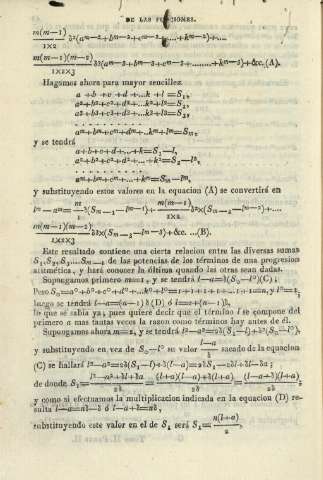 DE LAS FUNCIONES.
m(m—1)/1X2 δ²(aᵐ⁻²+bᵐ⁻²+cᵐ⁻²+....+kᵐ⁻²)+....
m(m—1)(m—2)/1X2X3 δ³(aᵐ⁻³+bᵐ⁻³+cᵐ⁻³+........+kᵐ⁻³)+&c.(A).
Hagamos ahora para mayor sencillez
a +b +c +d +...k +l =S₁,
a²+b²+c²+d²+...k²+l²=S₂,
a³+b³+c³+d³+...k³+l³=S₃,
. . . . . . . . . . . .
aᵐ+bᵐ+cᵐ+dᵐ+..kᵐ+lᵐ=Sₘ,
y se tendrá
a+b+c+d+...+k=S₁—l,
a²+b²+c²+d²+...+k²=S₂—l²,
. . . . . . . . . . . .
aᵐ+bᵐ+cᵐ+...+kᵐ=Sₘ—lᵐ,
y substituyendo estos valores en la equacion (A) se convertirá en
lᵐ—aᵐ= m/1 δ(Sₘ₋₁—lᵐ⁻¹)+ m(m—1)/1X2 δ²X(Sₘ₋₂—lᵐ⁻²)+....
m(m—1)(m—2)/1X2X3 δ³X(Sₘ₋₃—lᵐ⁻³)+&c. ...(B).
Este resultado contiene una cierta relacion entre las diversas sumas
S₁,S₂,S₃....Sₘ, de las potencias de los términos de una progresion
aritmética, y hará conocer la última quando las otras sean dadas.
Supongamos primero m=1, y se tendrá l—a=δ(S₀—l⁰)(C);
Pero S₀=a⁰+b⁰+c⁰+d⁰+...k⁰+l⁰=1+1+1+1+....1+1=n, y l⁰=1,
luego se tendrá l—a=(n—1)δ(D) ó l=a+(n—1)δ,
lo que se sabia ya, pues quiere decir que el término l se compone del
primero a mas tantas veces la razon como términos hay antes de él.
Supongamos ahora m=2, y se tendrá l²—a²=2δ(S₁—l)+δ²(S₀—l⁰),
y substituyendo en vez de S₀—l⁰ su valor (l—a)/δ sacado de la equacion
(C) se hallará l²—a²=2δ(S₁—l)+δ(l—a)=2δS₁—2δl+δl—δa;
de donde S₁= (l²—a²+δl+δa)/2δ = ((l+a)(l—a)+δ(l+a))/2δ = (l—a+δ)(l+a)/2δ;
y como si efectuamos la multiplicacion indicada en la equacion (D) re-
sulta l—a=nδ—δ ó l—a+δ=nδ,
substituyendo este valor en el de S₁ será S₁= n(l+a)/2,